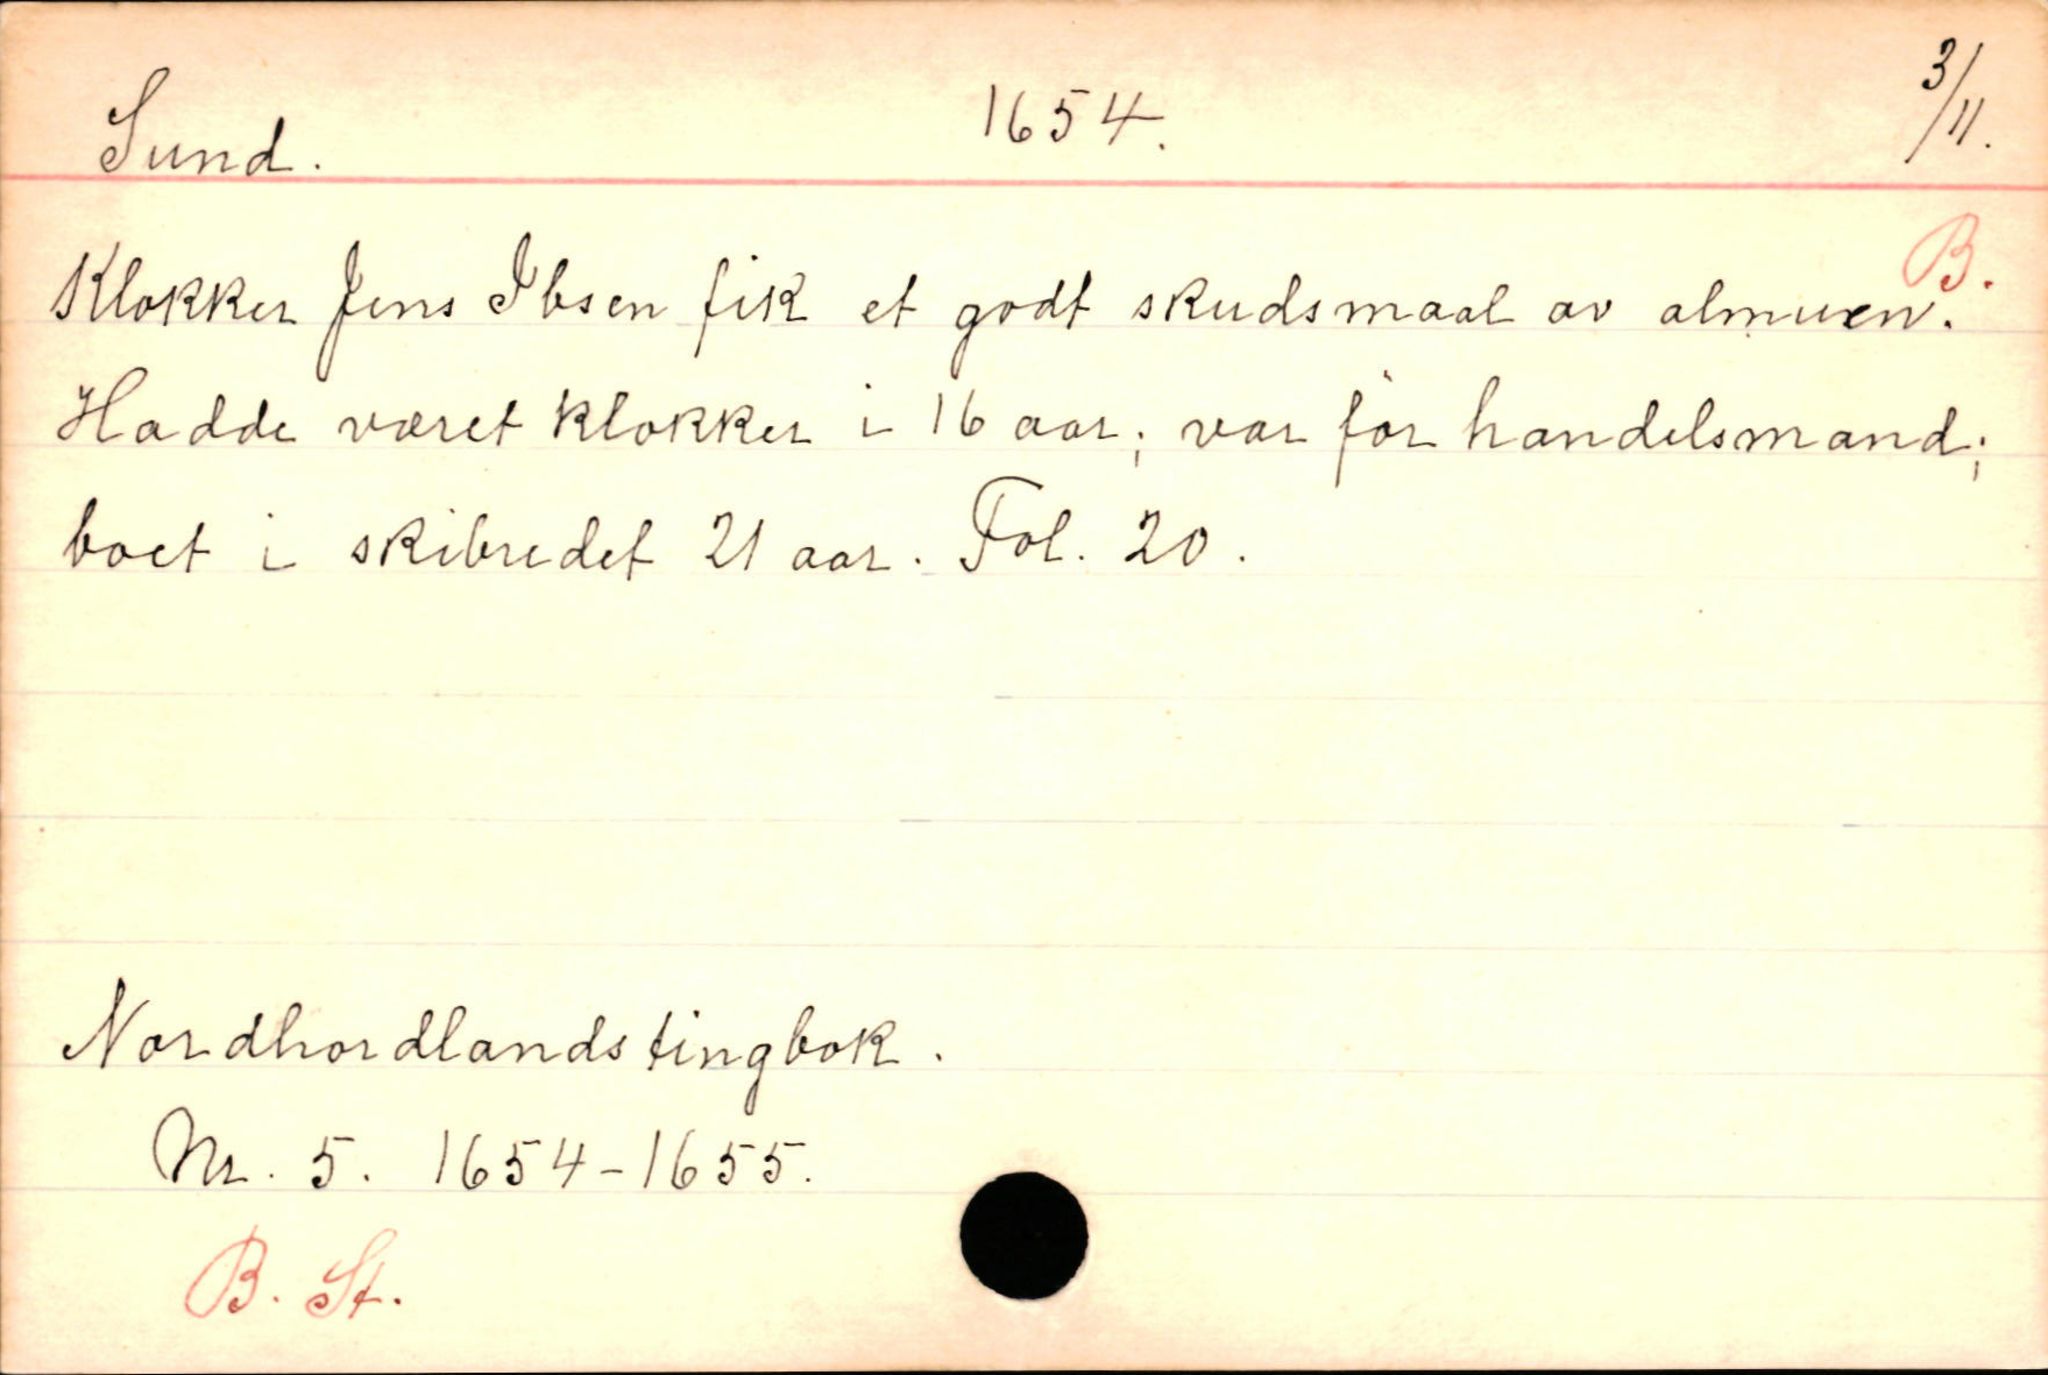 Sund. 1654. 3/11.
B.
Klokker Jens Ibsen fik et godt skudsmaal av almuen.
Hadde været klokker i 16 aar; var før handelsmand;
boet i skibredet 21 aar. Fol. 20.
Nordhordlands tingbok.
Nr. 5. 1654-1655.
B. St.